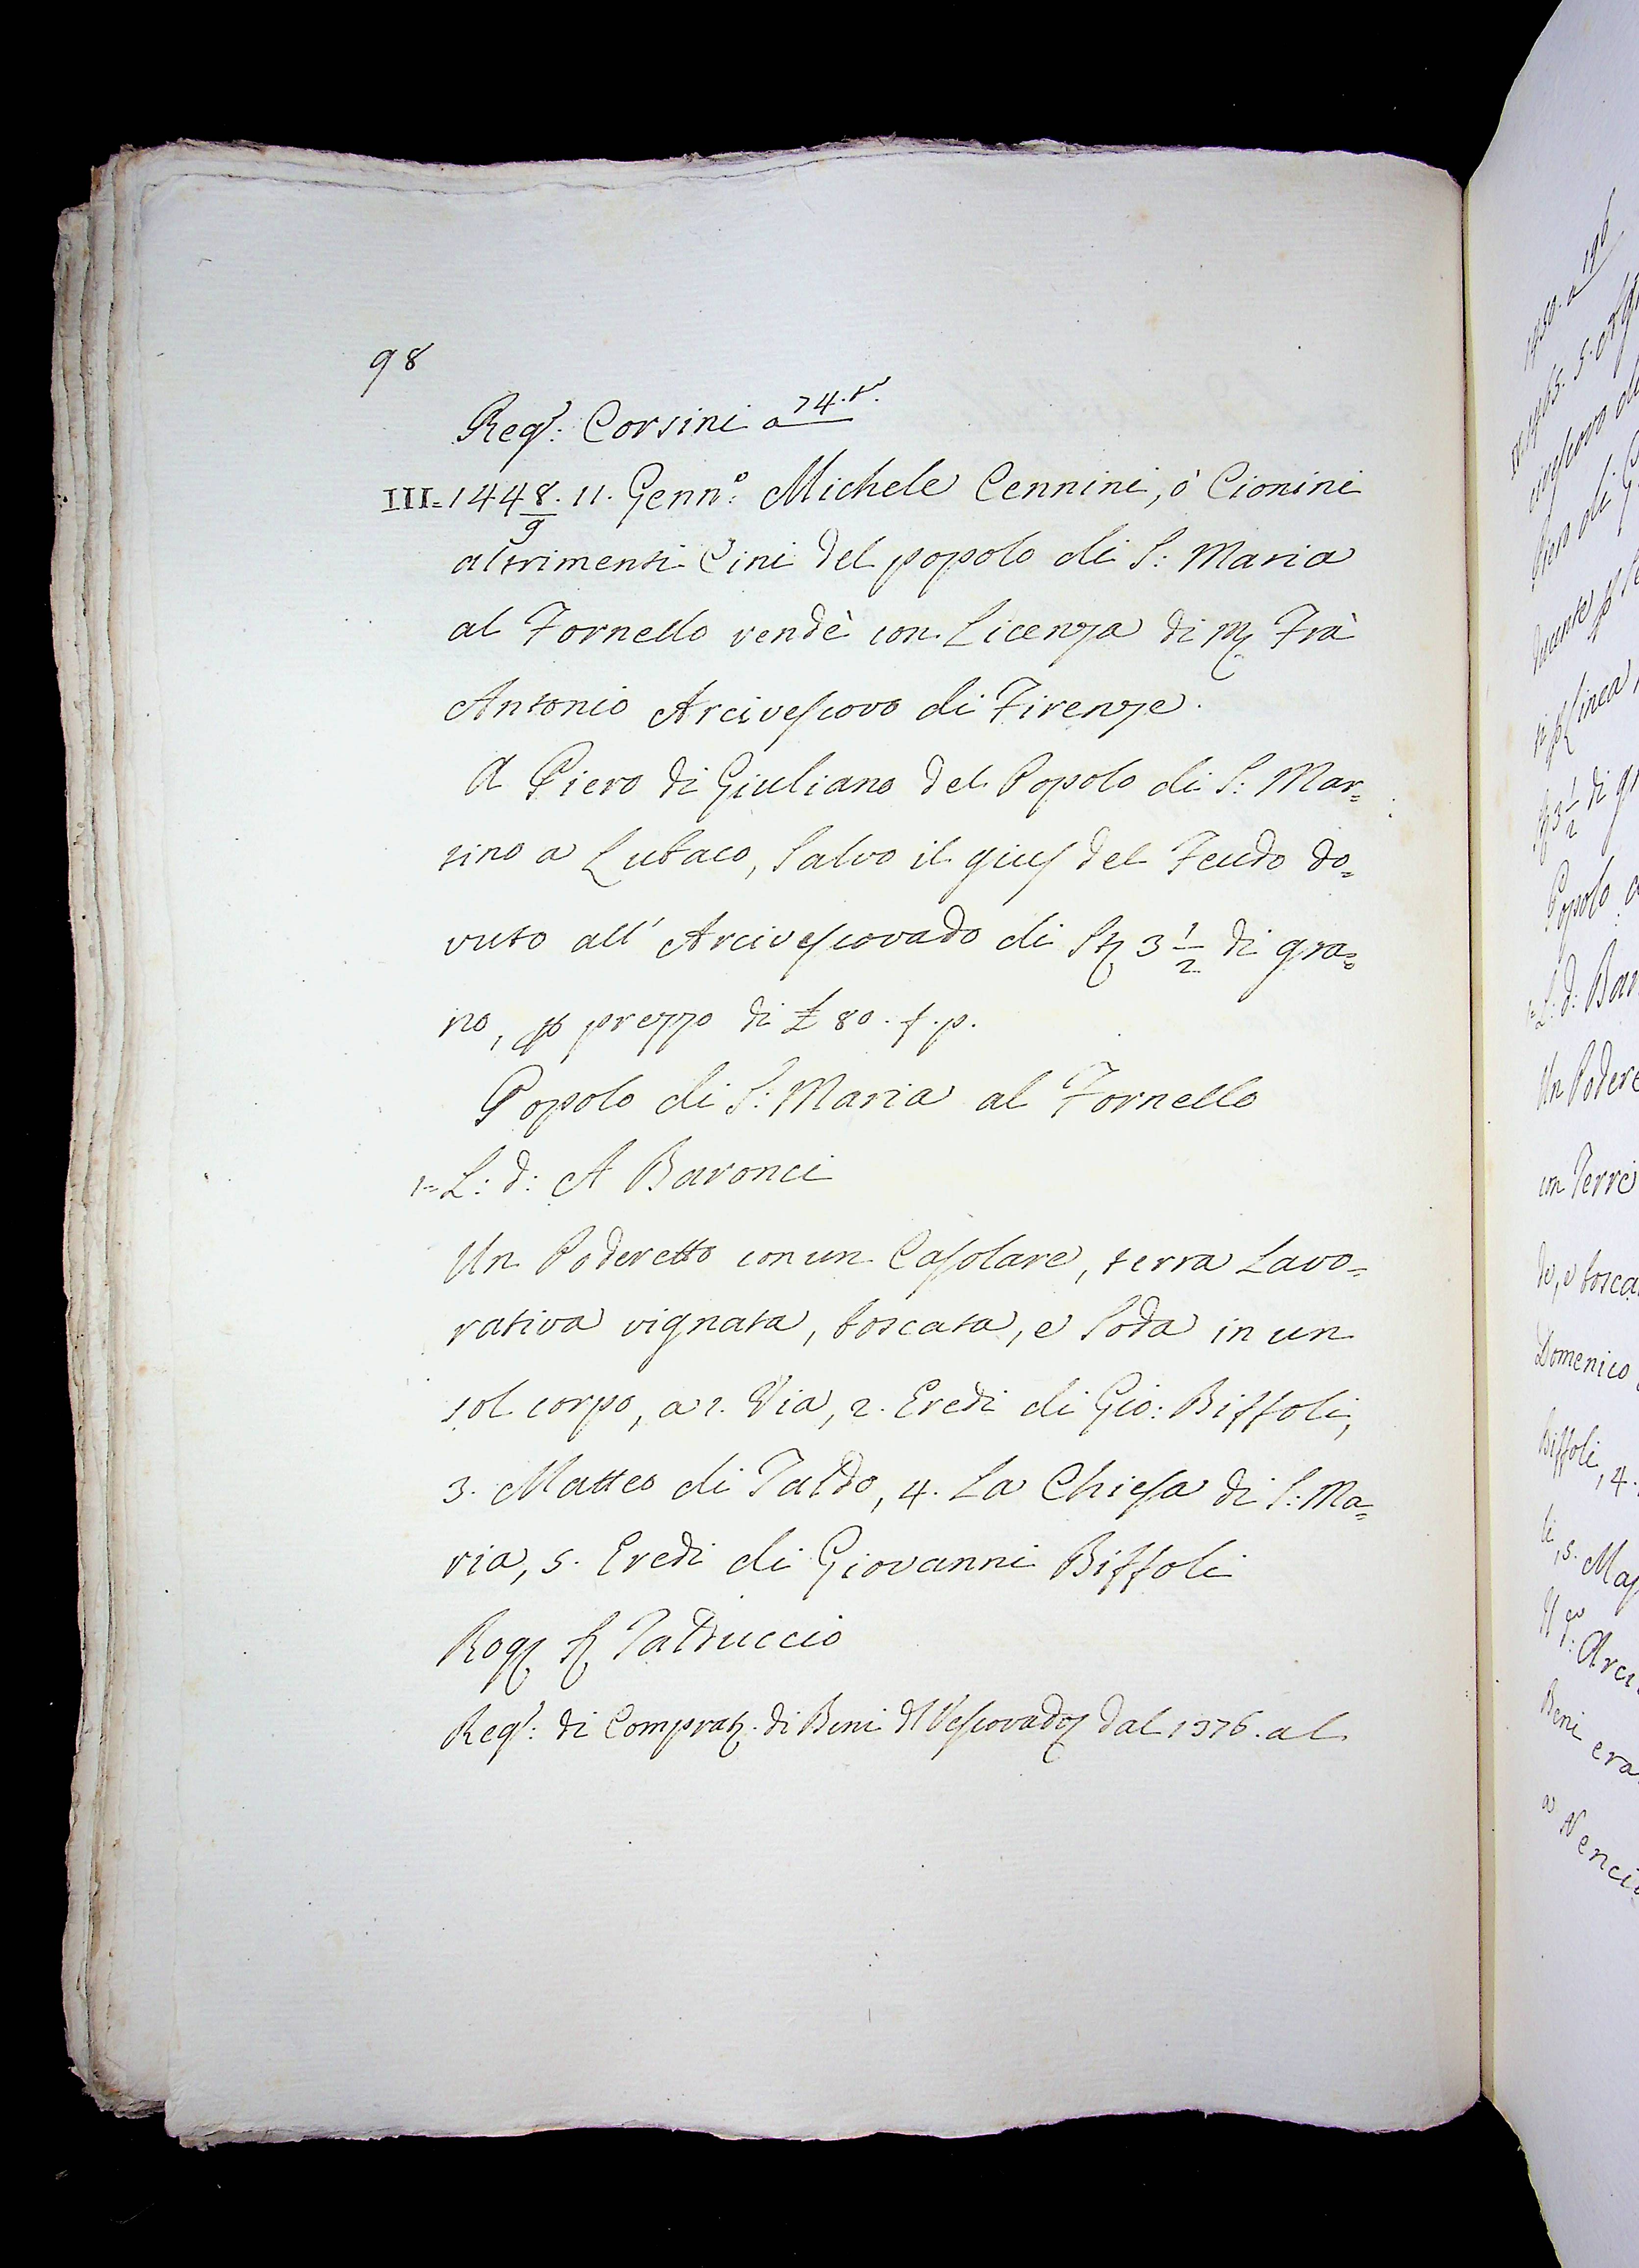 98
Reg.º: Corsini a 74.tº.
III=1448/9. 11. Genn.º: Michele Cennini, ó Cionini
altrimenti Cini del popolo di S: Maria
al Fornello vendè con Licenza di M. Frà
Antonio Arcivescovo di Firenze.
A Piero di Giuliano del Popolo di S: Mar=
tino a Lubaco, Salvo il gius del Feudo do=
vuto all' Arcivescovado di St. 3 1/2 di gra=
no, p prezzo di £ 80. f. p.
Popolo di S: Maria al Fornello
1= L: d: A Baronci
Un Poderetto con un Casolare, terra Lavo=
rativa vignata, boscata, e Soda in un
sol corpo, a 1. Via, 2. Eredi di Gio: Biffoli,
3. Matteo di Taldo, 4. La Chiesa di S: Ma=
ria, 5. Eredi di Giovanni Biffoli
Rog. S. Talduccio
Reg.º: di Comprat. di Beni dl Vescovado dal 1376. al
1450. a 196
Piero di
Popolo
L: d: Bar
Un Podere
con Terre
de, e bosca
Domenico
Biffoli, 4.
li, 5. Mas
Arci
Beni era
a Nenci